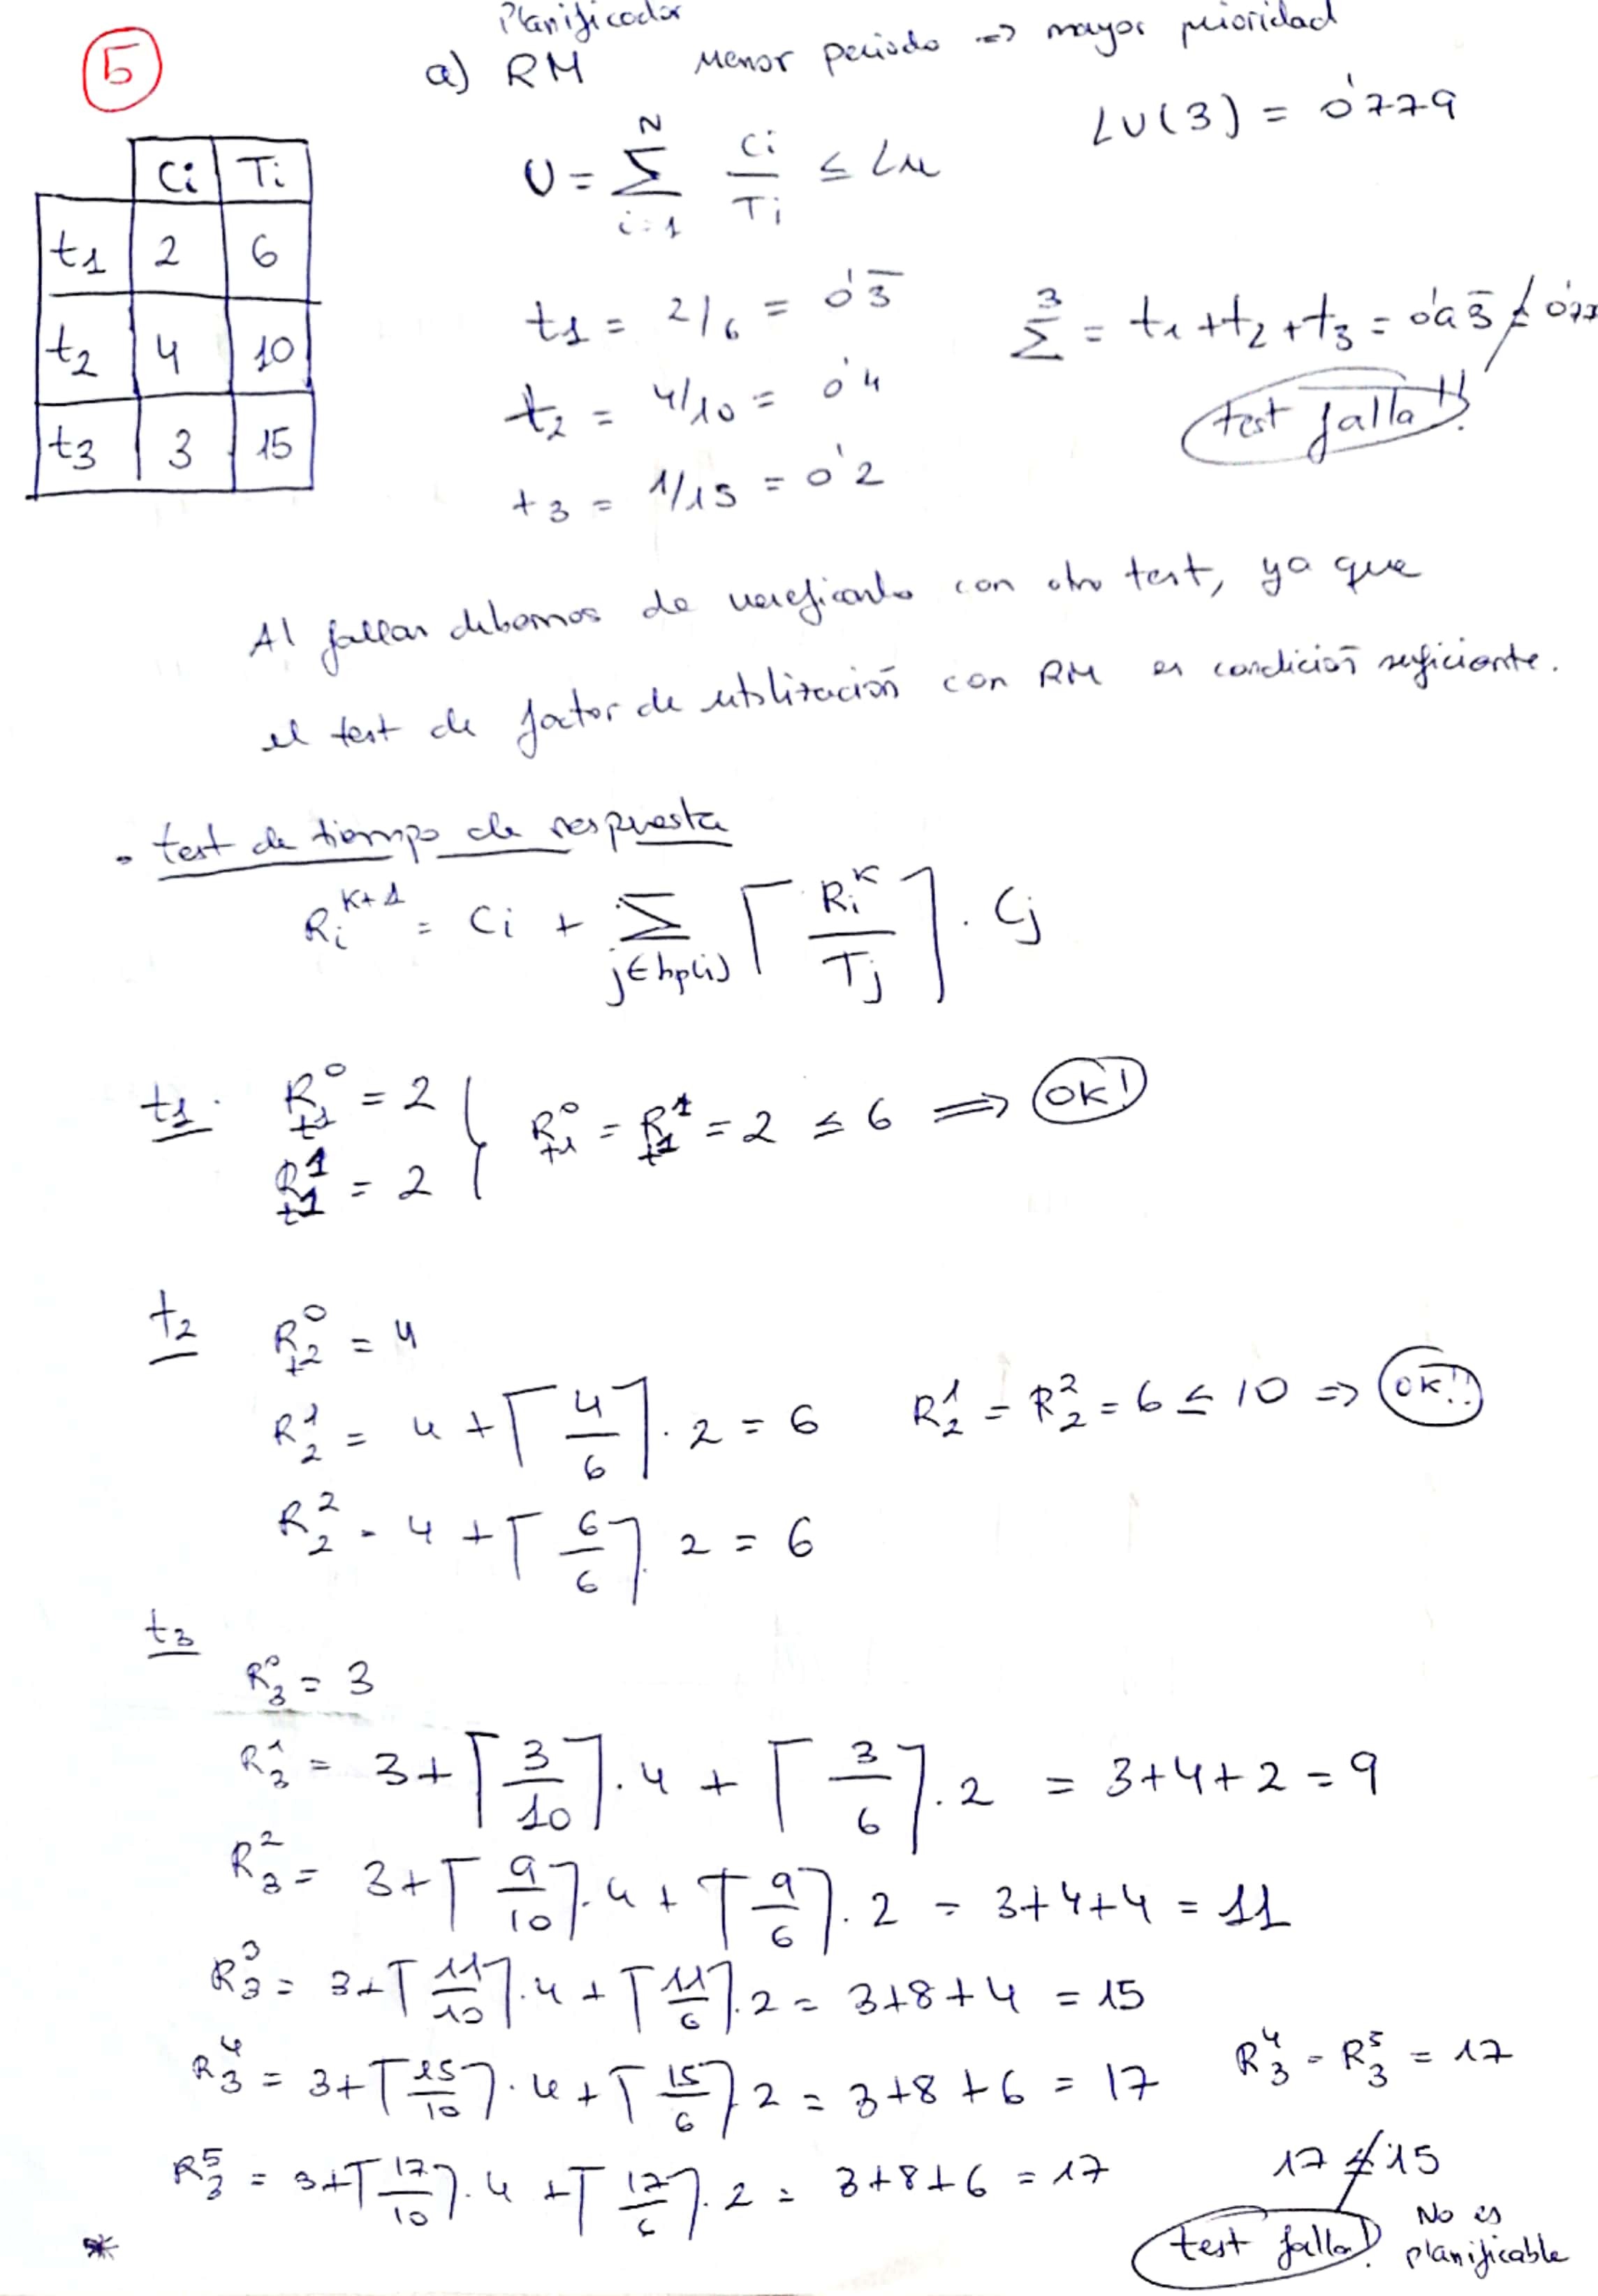 5
Planificador
a) RM   Menor periodo => mayor prioridad
LU(3) = 0'779
U = Σ_{i=1}^{N} Ci/Ti ≤ Lu
Ci Ti
t1 2 6
t2 4 10
t3 3 15
t1 = 2/6 = 0'3̅
t2 = 4/10 = 0'4
t3 = 1/15 = 0'2
Σ^3 = t1 + t2 + t3 = 0'93̅ ≰ 0'77
test falla!!
Al fallar debemos de verificarlo con otro test, ya que
el test de factor de utilización con RM es condición suficiente.
- test de tiempo de respuesta
R_i^{K+1} = Ci + Σ_{j∈hp(i)} ⌈R_i^K / Tj⌉ · Cj
t1. R_{t1}^0 = 2
R_{t1}^1 = 2
R_{t1}^0 = R_{t1}^1 = 2 ≤ 6 => OK!
t2 R_{t2}^0 = 4
R_2^1 = 4 + ⌈4/6⌉ · 2 = 6   R_2^1 = R_2^2 = 6 ≤ 10 => OK!!
R_2^2 = 4 + ⌈6/6⌉. 2 = 6
t3
R_3^0 = 3
R_3^1 = 3 + ⌈3/10⌉ · 4 + ⌈3/6⌉ . 2 = 3+4+2 = 9
R_3^2 = 3 + ⌈9/10⌉ · 4 + ⌈9/6⌉ . 2 = 3+4+4 = 11
R_3^3 = 3 + ⌈11/10⌉ · 4 + ⌈11/6⌉ . 2 = 3+8+4 = 15
R_3^4 = 3 + ⌈15/10⌉ · 4 + ⌈15/6⌉ 2 = 3+8+6 = 17   R_3^4 = R_3^5 = 17
R_3^5 = 3 + ⌈17/10⌉ . 4 + ⌈17/6⌉ . 2 = 3+8+6 = 17   17 ≰ 15
test falla!   No es
planificable
*